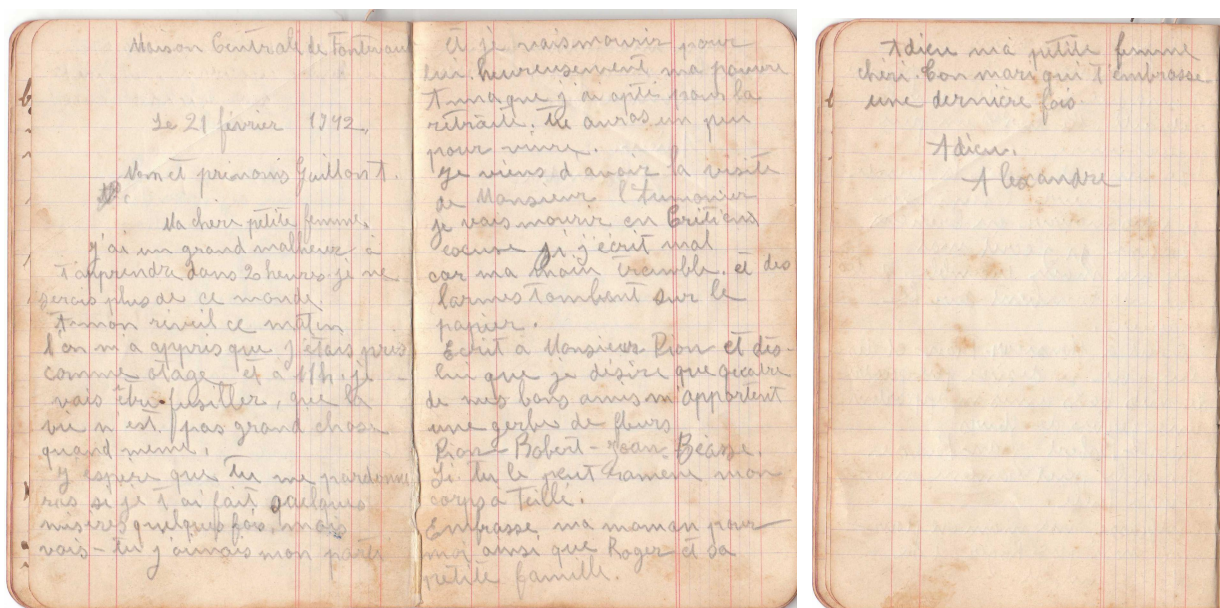 Maison Centrale de Fontevault
Le 21 février 1942.
Nom et prénoms Guillon A.
Ma chéri petite femme,
j'ai un grand malheur à
t'apprendre dans 2 heures je ne
serais plus de ce monde.
A mon réveil ce matin
l'on m'a appris que j'étais pris
comme otage et à 11h. je
vais être fusiller, que la
vie n'est pas grand chose
quand meme,
j'espere que tu me pardonne
ras si je t'ai fait quelques
misères quelques fois, mais
vois-tu j'aimais mon parti
et je vais mourir pour
lui. heureusement ma pauvre
que j'ai opté pour la
retraite. tu auras un peu
pour vivre.
Je viens d'avoir la visite
de Monsieur l'Aumonier
je vais mourir en Crétiens
excuse si j'écrit mal
car ma main tremble. et des
larmes tombent sur le
papier.
Ecrit à Monsieur Pion et dis-
lui que je désire que quatre
de mes bons amis m'apportent
une gerbe de fleurs
Pion - Robert - Joan. Béasse.
Si tu le peut ramene mon
corps a Teillé.
Embrasse ma maman pour
moi ainsi que Roger et sa
petite famille.
Adieu ma petite femme
chéri. Ton mari qui t'embrasse
une dernière fois
Adieu.
Alexandre